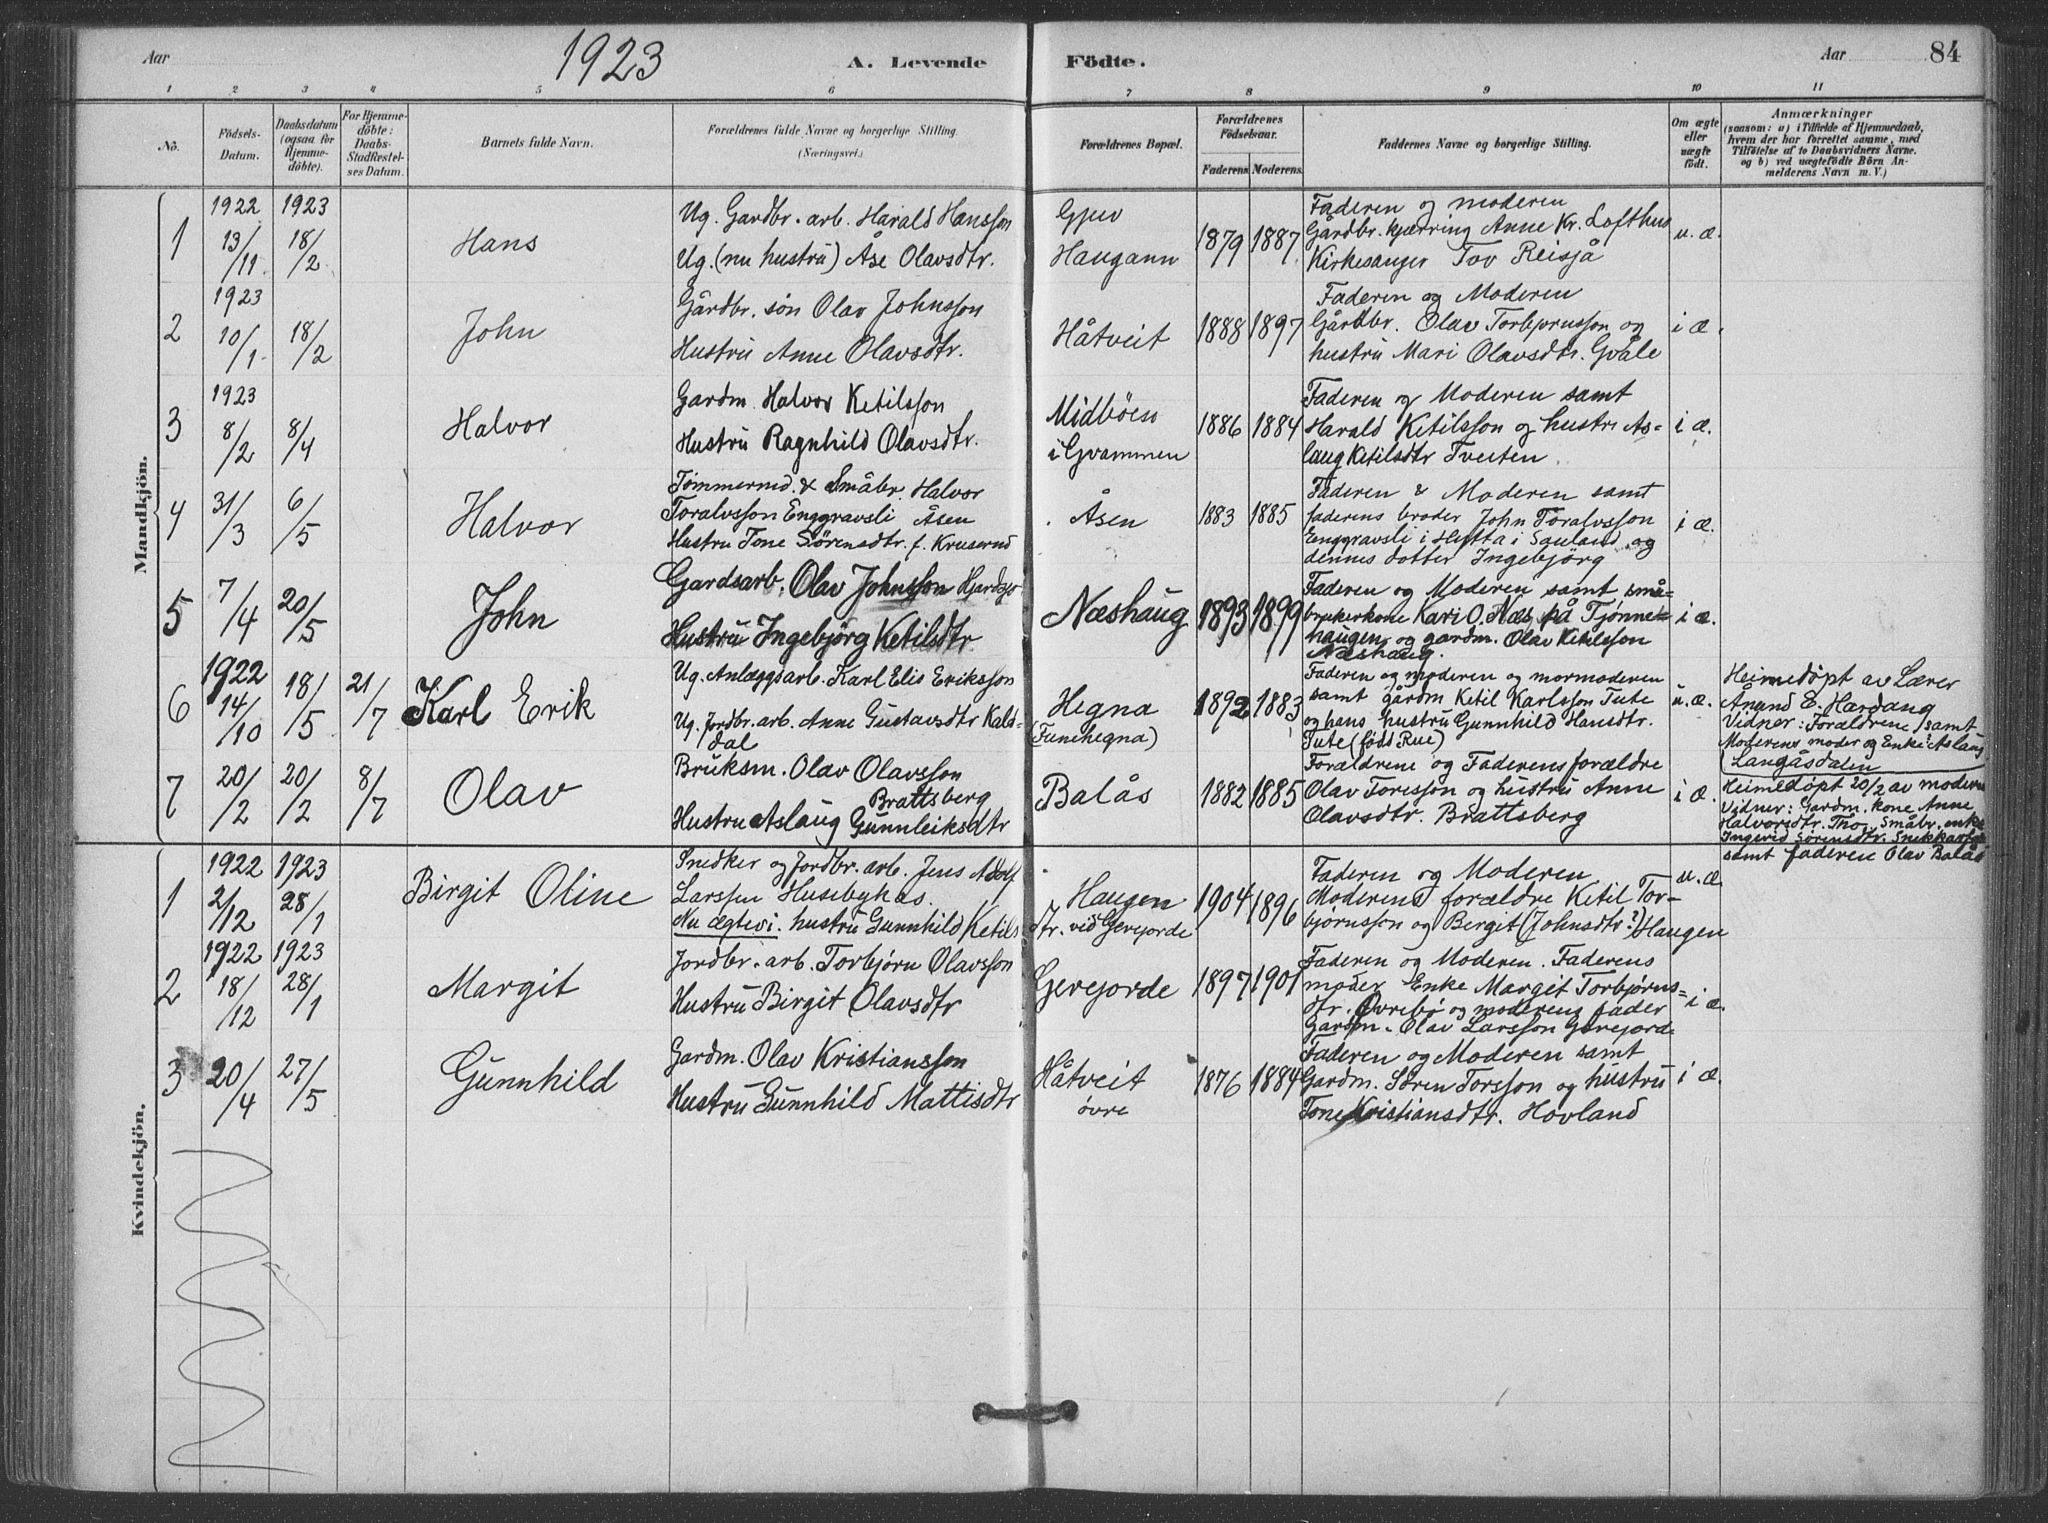 Aar
1923
A. Levende
Födte.
Aar
84
1
2
3
4
5
6
7
8
9
10
11
No.
Födsels-
Datum.
Daabsdatum
(ogsaa for
Hjemme-
döbte).
For Hjemme-
döbte:
Daabs-
Stadfestel-
ses Datum.
Barnets fulde Navn.
Forældrenes fulde Navne og borgerlige Stilling.
(Næringsvei.)
Forældrenes Bopæl.
Forældrenes
Födselsaar.
Faderens
Moderens.
Faddernes Navne og borgerlige Stilling.
Om ægte
eller
uægte
födt.
Anmærkninger
(saasom: a) i Tilfælde af Hjemmedaab,
hvem der har forrettet samme, med
Tilföielse af to Daabsvidners Navne.
og b) ved uægtefödte Börn An-
melderens Navn m. V.)
Mandkjön.
1
1922
13/11
1923
18/2
Hans
Ug. Gardbr. arb. Harald Hansson
Ug. (nu hustru) Åse Olavsdtr.
Gjuv
Haugann
1879
1887
Faderen og moderen
Gårdbr. kjærring Anne Kr. Lofthus
Kirkesanger Tov Reisjå
u. æ.
2
1923
10/1
18/2
John
Gårdbr. søn Olav Johnsson
Hustru Anne Olavsdtr.
Håtveit
1888
1897
Faderen og Moderen
Gårdbr. Olav Torbjørnsson og
hustru Mari Olavsdtr. Gvåle
i æ.
3
1923
8/2
8/4
Halvor
Gardm. Halvor Ketilsson
Hustru Ragnhild Olavsdtr.
Midbøen
i Gvammen
1886
1884
Faderen og Moderen samt
Harald Ketilsson og hustru As-
laug Ketilsdtr Tveiten.
i æ.
4
31/3
6/5
Halvor
Tømmermd. & Småbr. Halvor
Toralvsson Enggravsli Åsen
Hustru Tone Sørensdtr. f. Kruserud
Åsen
1883
1885
Faderen & Moderen samt
faderens broder John Toralvsson
Enggravsli i Hytta i Sauland og
dennes dotter Ingebjörg
i æ.
5
7/4
20/5
John
Gardsarb. Olav Johnsson Hjardsjø
Hustru Ingebjørg Ketilsdtr
Næshaug
1893
1899
Faderen og Moderen samt små-
brukerkone Kari O. Næs på Tjønne-
haugen og gardm. Olav Ketilsson
Næshaug.
i æ.
6
1922
14/10
18/5
21/7
Karl Erik
Ug. Anlægsarb. Karl Elis Eriksson
Ug. Jordbr. arb. Anne Gustavsdtr Kals-
dal
Hegna
(Funehegna)
1892
1883
Faderen og moderen og mormoderen
samt gårdm Ketil Karlsson Tute
og hans hustru Gunnhild Hansdtr.
Tute (født Rue)
u. æ.
Heimedøpt av Lærer
Ånund E. Hardang
Vidner: Foreldrene samt
Moderens moder og Enke Aslaug
Langåsdalen
7
20/2
20/2
8/7
Olav
Bruksm. Olav Olavsson
Brattsberg
Hustru Aslaug Gunnleiksdtr
Balås
1882
1885
Forældrene og Faderens forældre
Olav Toresson og hustru Anne
Olavsdtr. Brattsberg
i æ.
Heimedøpt 20/2 av moderen
Vidner: Gardm. kone Anne
Halvorsdtr. Tho, Småbr. enke
Ingerid Sørensdtr.
samt faderen Olav Balås
Kvindekjön.
1
1922
2/12
1923
28/1
Birgit Oline
Snedker og Jordbr. arb. Jens Adolf
Larssen Husebykås.
Nu ægtevi. hustru Gunnhild Ketils-
dtr.
Haugen
vid Gerejorde
1904
1896
Faderen og Moderen.
Moderens forældre Ketil Tor-
bjørnsson og Birgit (Johnsdtr?) Haugen
u. æ.
2
1922
18/12
1923
28/1
Margit
Jordbr. arb. Torbjørn Olavsson
Hustru Birgit Olavsdtr
Gerejorde
1897
1901
Faderen og Moderen. Faderens
moder Enke Margit Torbjørns-
dtr. Øvrebø og moderens fader
Gardm. Olav Larsson Gerejorde
i æ.
3
20/4
27/5
Gunnhild
Gardm. Olav Kristiansson
Hustru Gunnhild Mattisdtr
Håtveit
øvre
1876
1884
Faderen og Moderen samt
Gardm. Søren Torsson og hustru
Tone Kristiansdtr. Hovland
i æ.